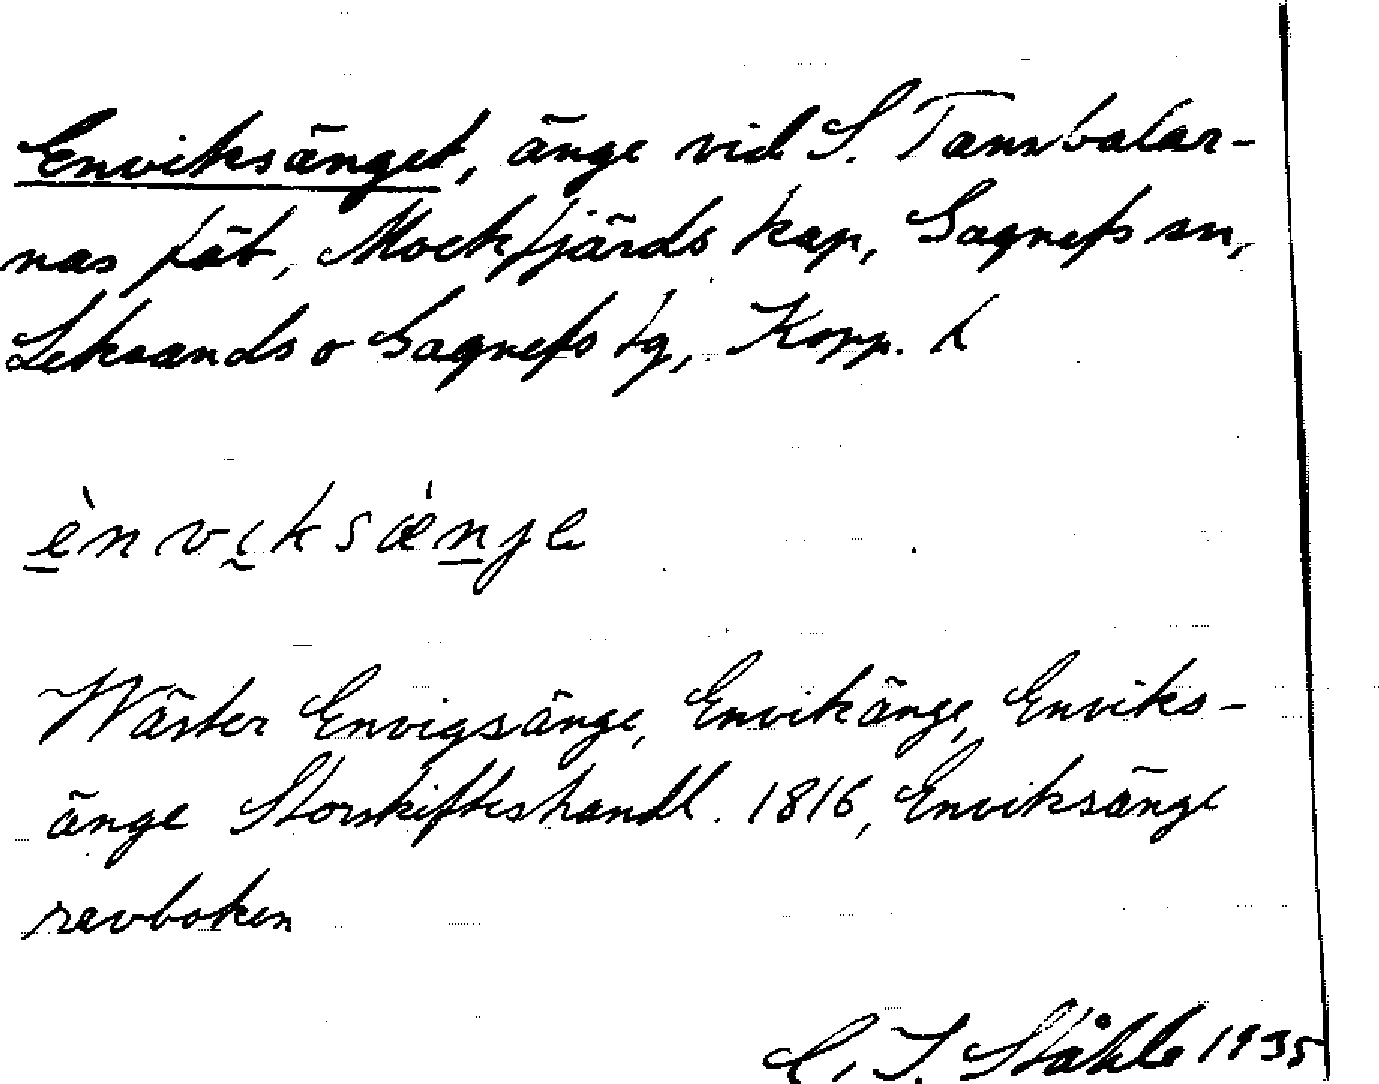 Enviksänget, änge vid S. Tannbalar-
nas fäb, Mockfjärds kap, Gagnefs sn,
Leksands o Gagnefs tg, Kopp. l
ènviksæ̀nje
Wäster Envigsänge, Envikänge, Enviks-
änge Storskifteshandl. 1816, Enviksänge
revboken
C. I. Ståhle 1935